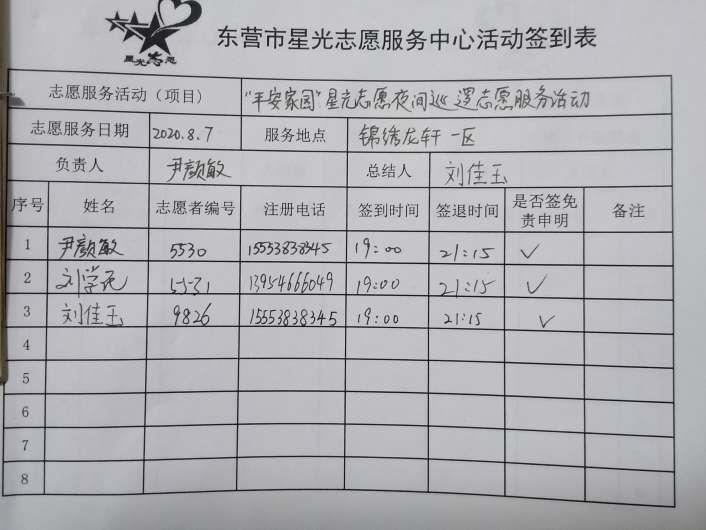 星光志愿
东营市星光志愿服务中心活动签到表
志愿服务活动（项目） "平安家园"星光志愿夜间巡逻志愿服务活动
志愿服务日期 2020.8.7 服务地点 锦绣龙轩一区
负责人 尹颜敏 总结人 刘佳玉
序号 姓名 志愿者编号 注册电话 签到时间 签退时间 是否签免责申明 备注
1 尹颜敏 5530 15553838345 19:00 21:15 ✓
2 刘学元 5531 13954666049 19:00 21:15 ✓
3 刘佳玉 9826 15553838345 19:00 21:15 ✓
4
5
6
7
8